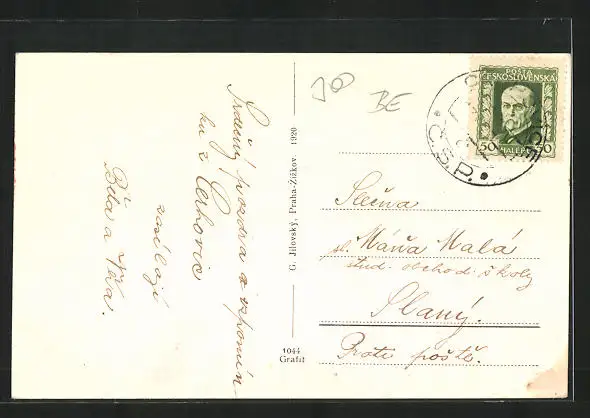 Srdečný pozdrav a vzpomín
ku z Cerhovic
zasílají
Běla a Věra.
G. Jílovský, Praha-Žižkov. 1920
1044
Grafit
JO
BE
POŠTA
ČESKOSLOVENSKÁ
50
HALÉŘŮ
Č.S.P.
Slečna
sl. Máňa Malá
stud. obchod. školy
Slaný.
Proti poště.